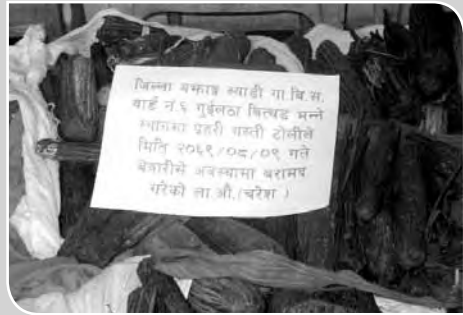 जिल्ला बझाङ्ग स्याडी गा.वि.स.
वार्ड नं.६ गुईलठा भन्ने
स्थानमा प्रहरी गस्ती टोलीले
मिति २०६९/०८/०९ गते
बेवारीसे अवस्थामा बरामद
गरेको ला.औ.(चरेश)